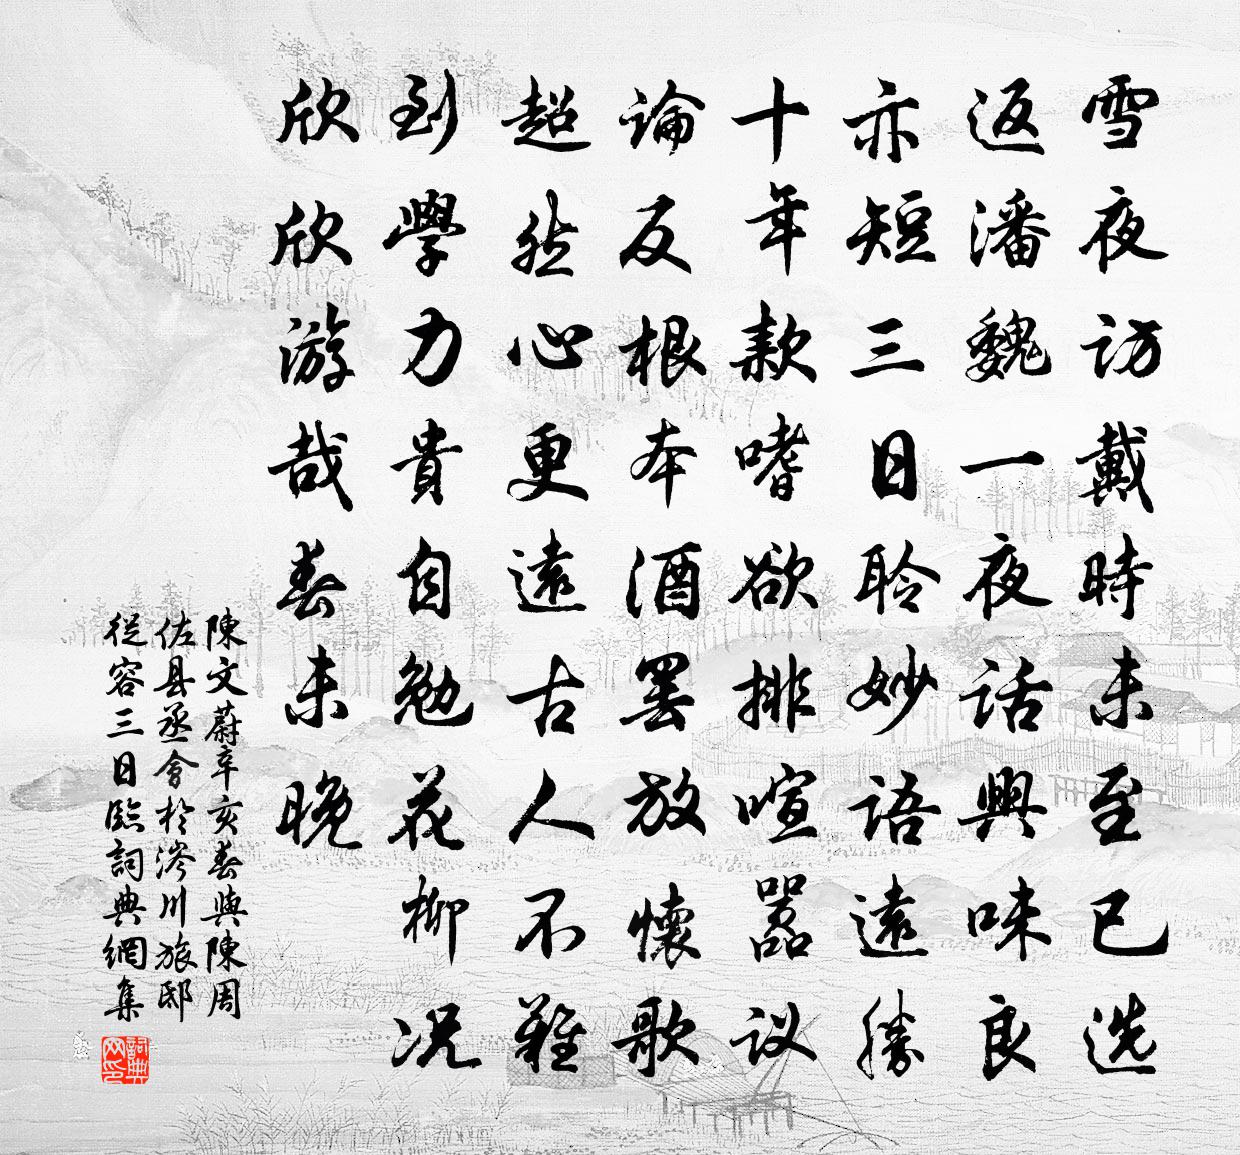 雪夜访戴時未至已选
返潘魏一夜话興味良
亦短三日聆妙语遠勝
十年款嗜欲排喧嚣议
論反根本酒罢放懷歌
超然心更遠古人不難
到學力貴自勉花柳况
欣欣游哉春未晚
陳文蔚辛亥春與陳周
佐县丞會於涔川旅邸
從容三日臨詞典網集
詞典网印